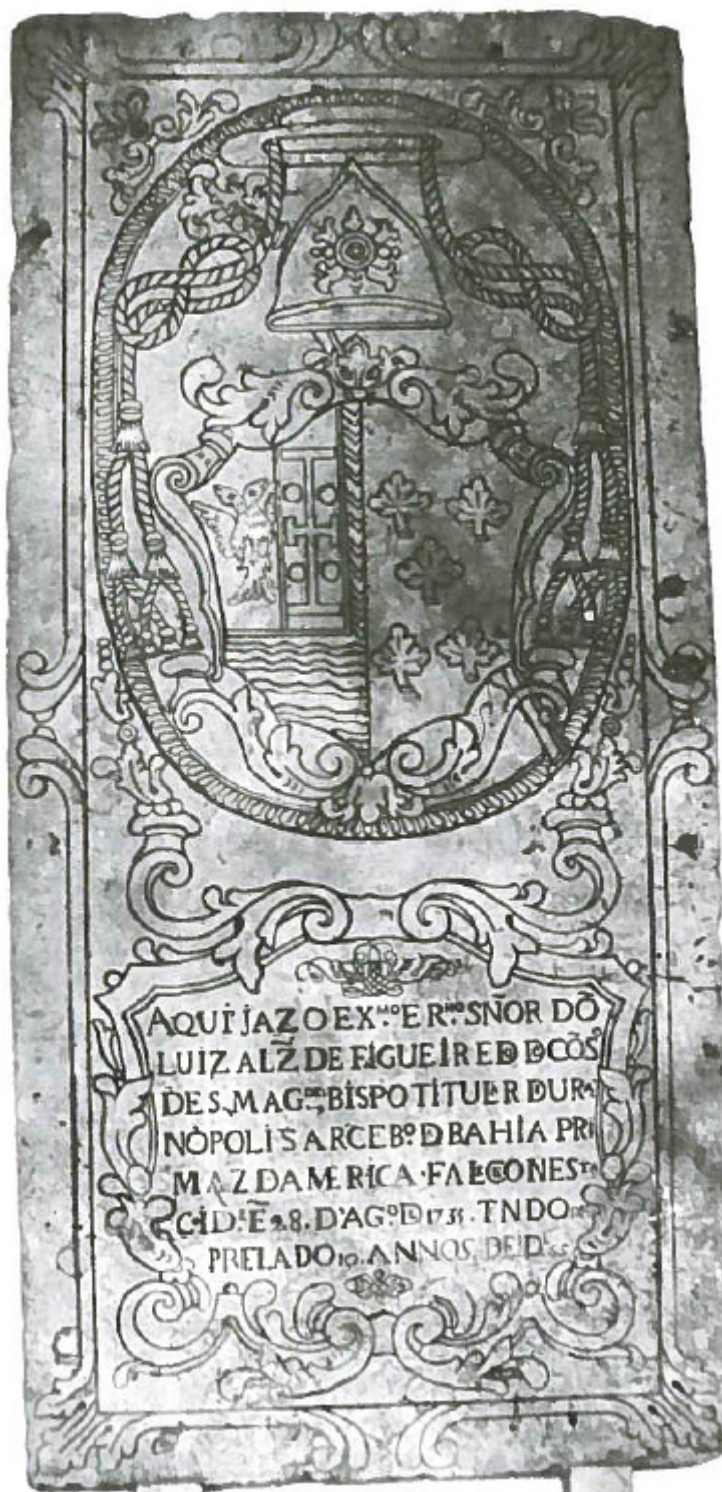 AQUI JAZ O EXᴹᴼ E Rᴹᴼ SÑOR DÕ
LUIZ ALZ̃ DE FIGUEIREDO DO CÕS
DE S. MAGᴰᴱ BISPO TITULER DURA
NÒPOLIS ARCEBº D BAHIA PRI
MAZ DAMERICA. FALECEO NESTA
CIDᴱ Ẽ 28. D'AGº D 1735. TNDO
PRELADO 10. ANNOS, DE ID